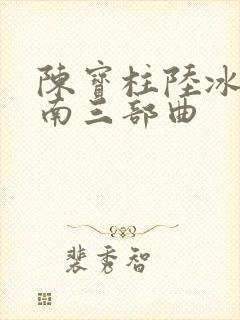 陳寶柱陸冰
南三部曲
裴秀智